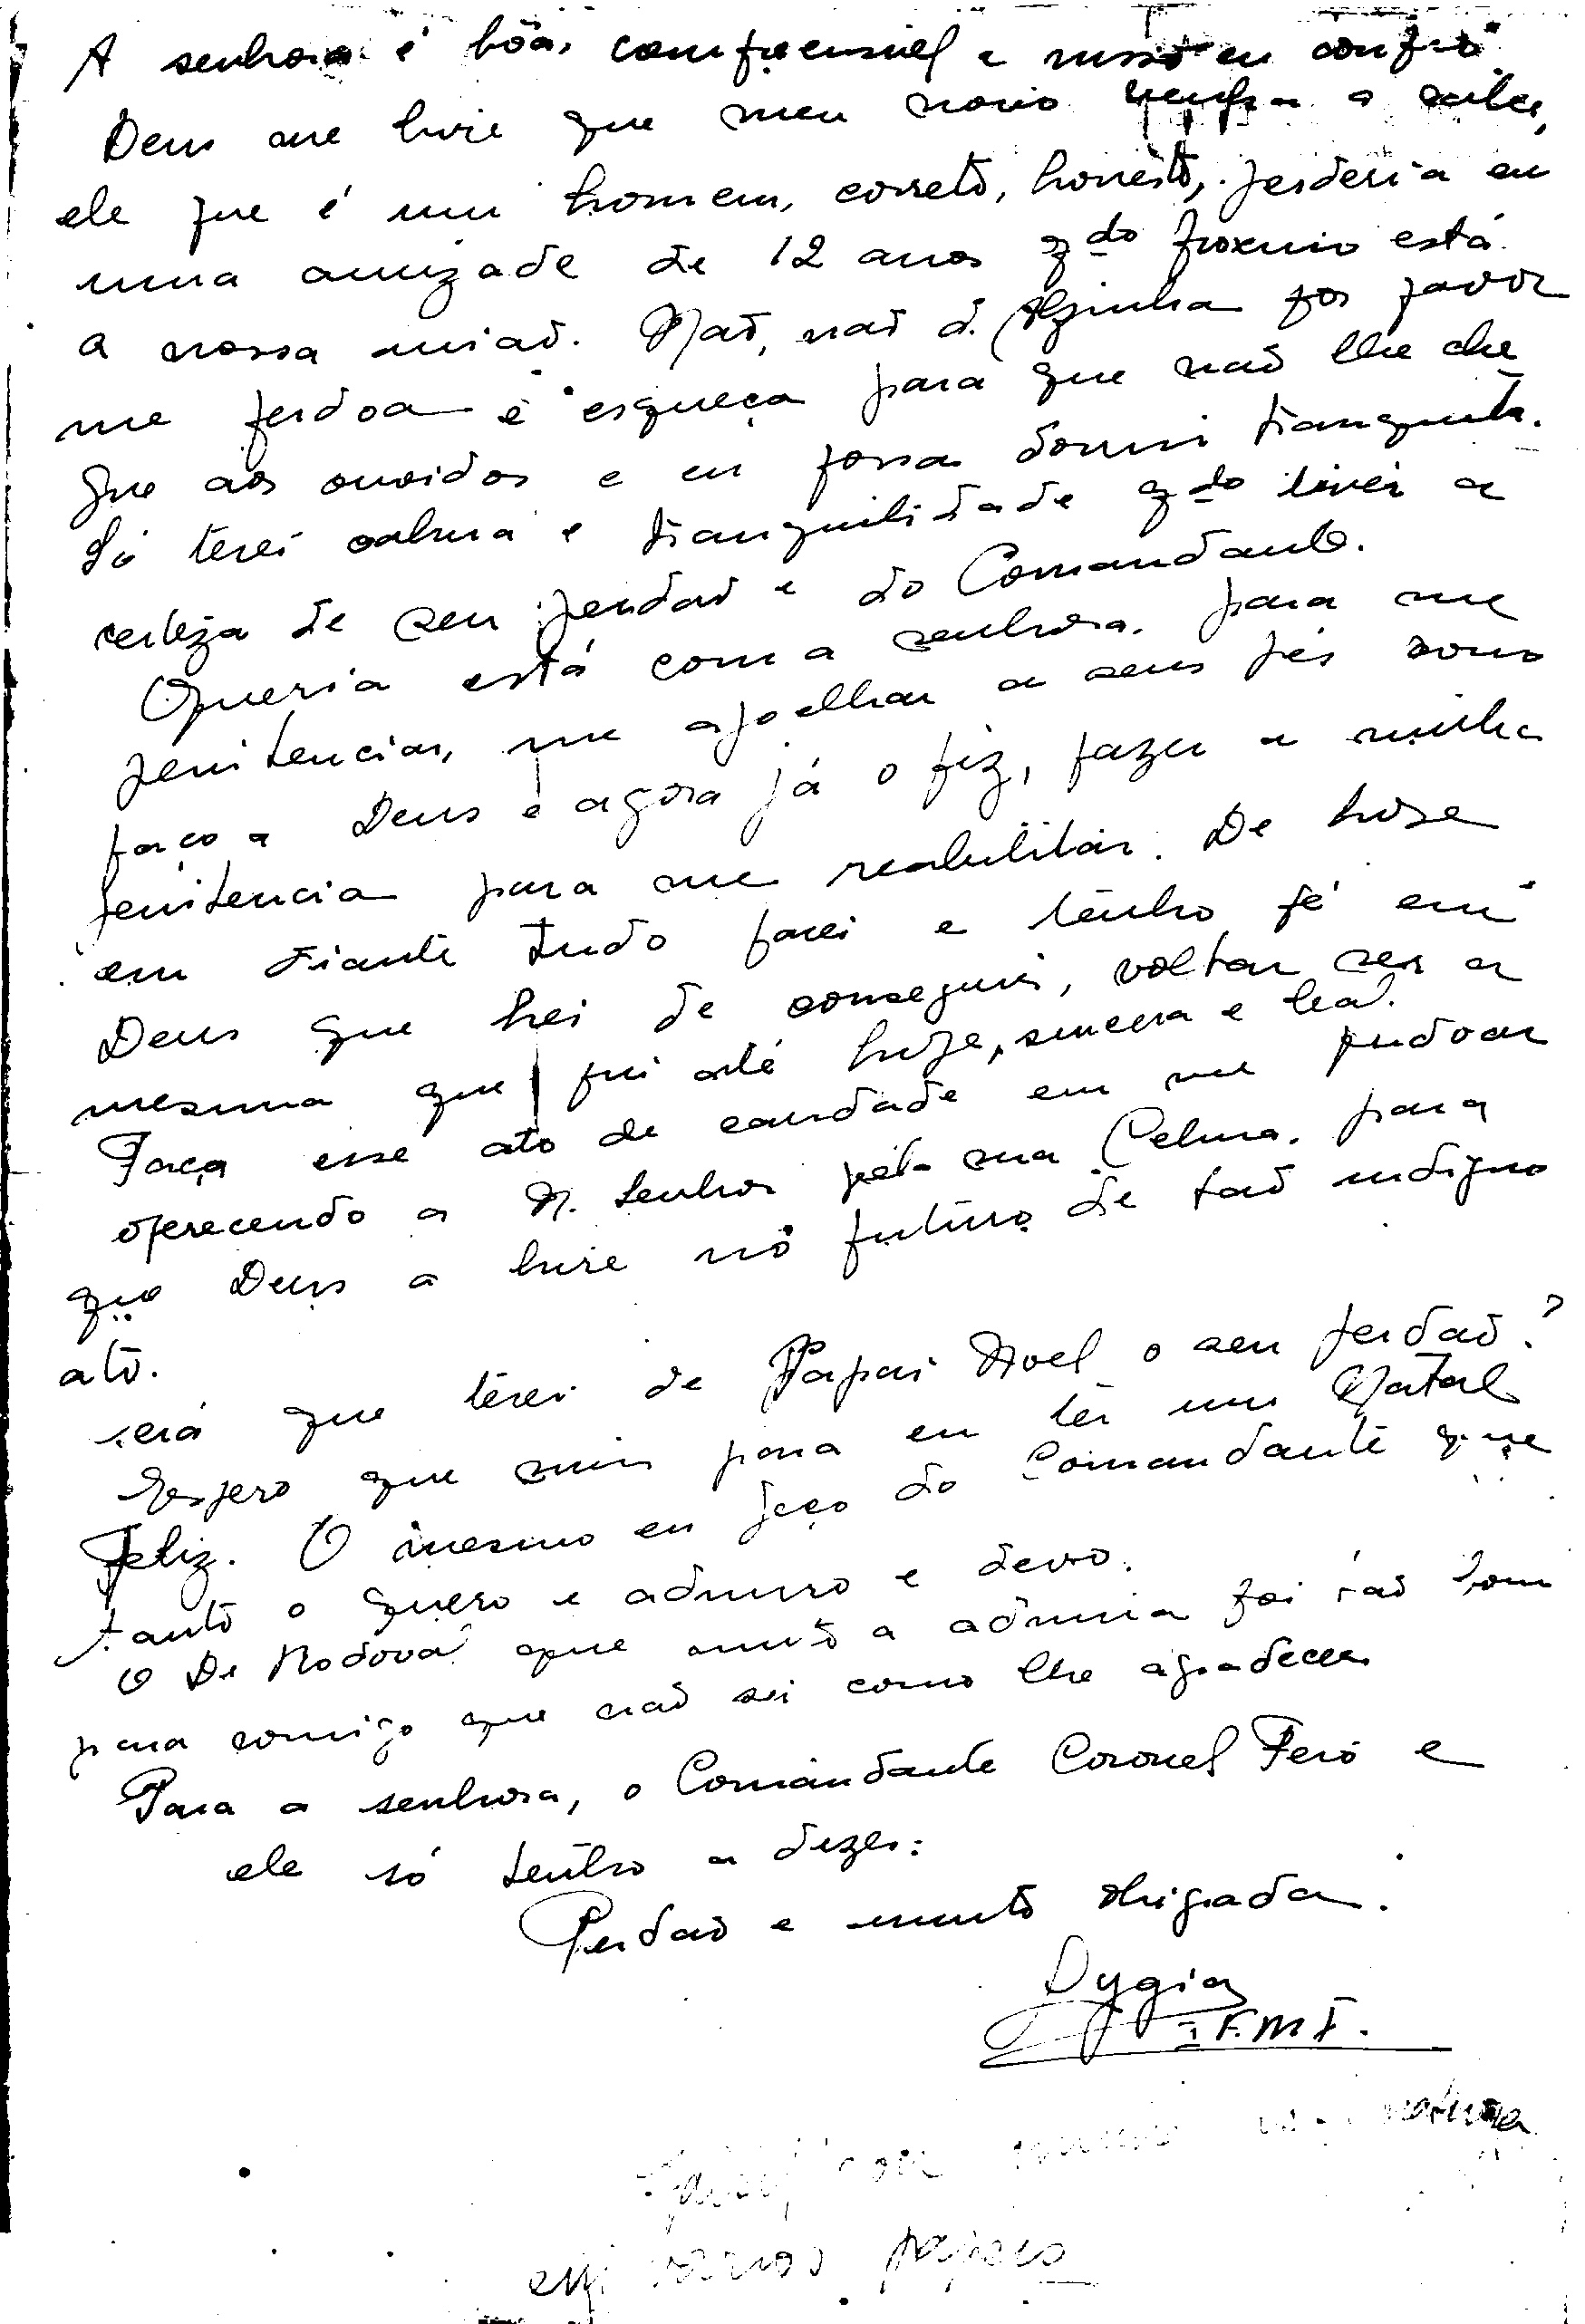 A senhora é bôa, compreensivel e nisso eu confio
Deus me livre que meu noivo venha a saber,
ele que é um homem, correto, honesto, perderia eu
uma amizade de 12 anos qdo proximo está
a nossa uniaõ. Naõ, naõ d. Alzinha por favor
me perdoa e esqueça para que naõ lhe che
gue aos ouvidos e eu possa dormi tranquila.
Só terei calma e tranquilidade qdo tiver a
certeza de seu perdaõ e do Comandante.
Queria está com a senhora. para me
penitenciar, me ajoelhar a seus pés como
faço a Deus e agora já o fiz, fazer a minha
penitencia para me reabilitar. De hoje
em diante tudo farei e tenho fé em
Deus que hei de conseguir, voltar ser a
mesma que fui até hoje, sincera e leal.
Faça esse ato de caridade em me perdoar
oferecendo a N. Senhor pela sua Celma. para
que Deus a livre no futuro de taõ indigno
ato.
será que terei de Papai Noel o seu perdaõ?
Espero que sim para eu ter um Natal
Feliz. O mesmo eu peço do Comandante que
tanto o quero e admiro e devo.
O Dr Nodova que muito a admira foi taõ bom
para comigo que naõ sei como lhe agradecer
Para a senhora, o Comandante Coronel Feió e
ele só tenho a dizer:
Perdaõ e muito obrigada.
Dygia
F.M.F.
natura
em varios papeis